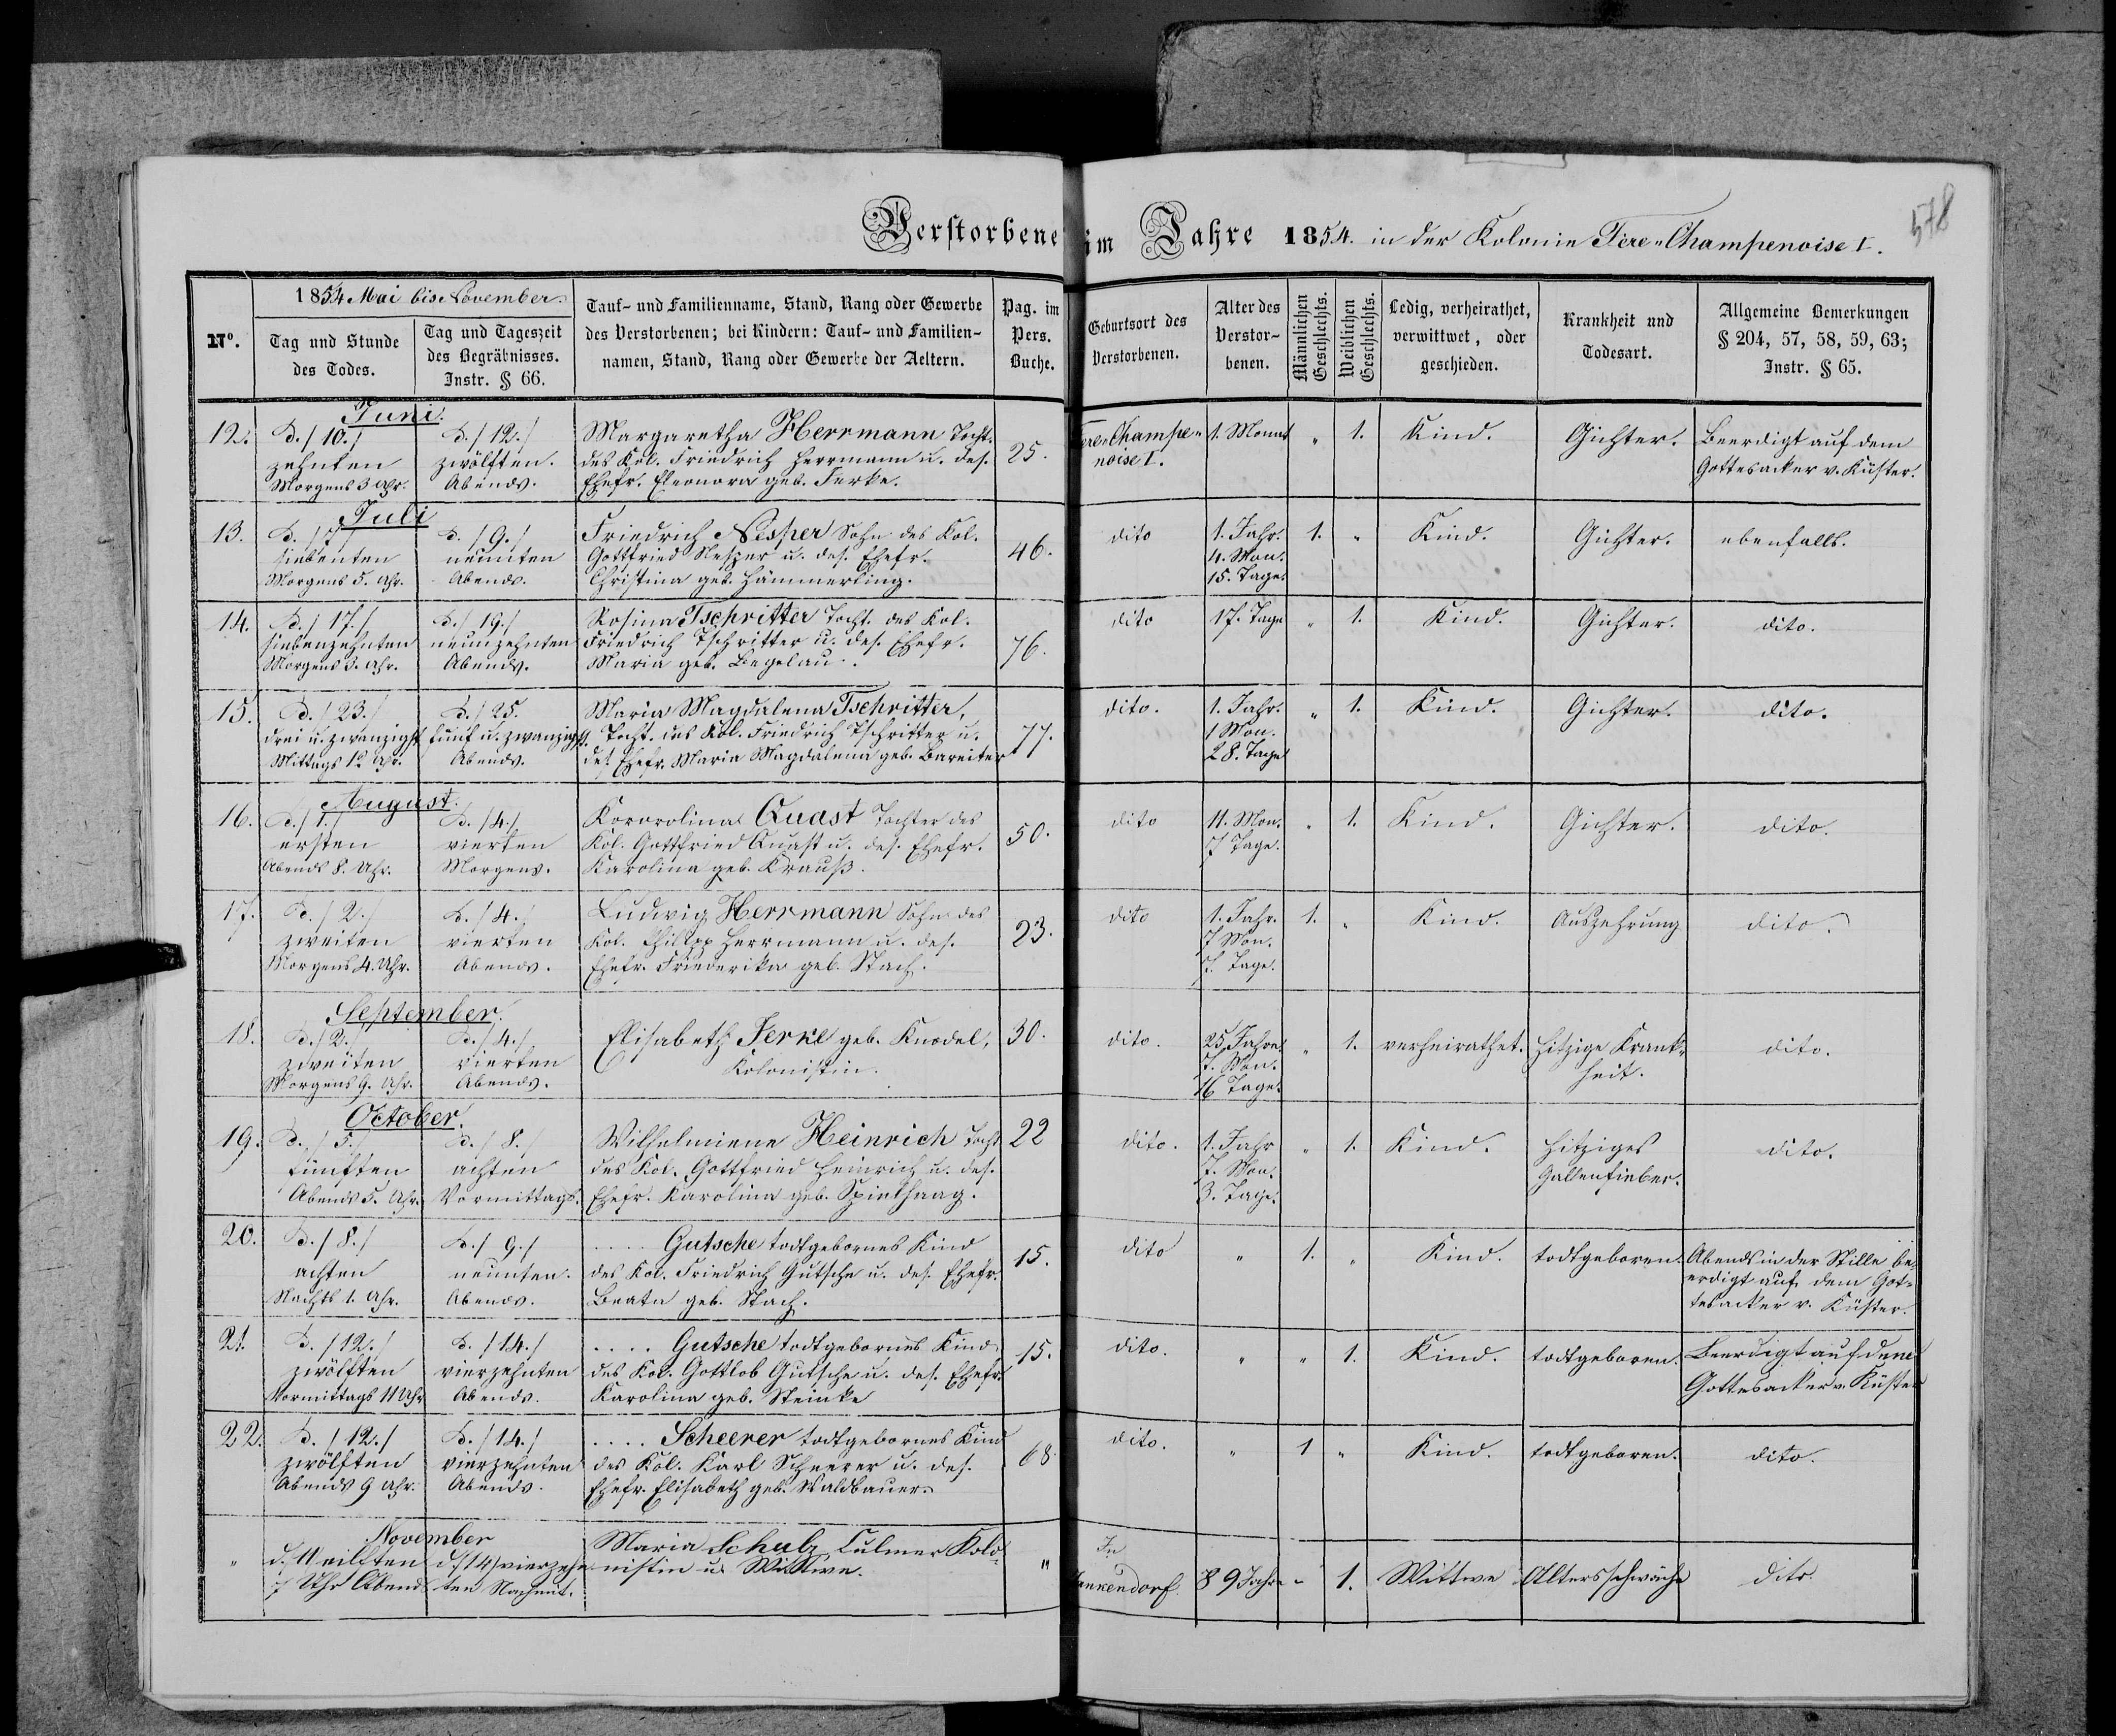 Verstorbene im Jahre 1854. in der Kolonie Fère-Champenoise I.
578
No.
1854 Mai bis November.
Tag und Stunde des Todes.
Tag und Tageszeit des Begräbnisses. Instr. § 66.
Tauf- und Familienname, Stand, Rang oder Gewerbe
des Verstorbenen; bei Kindern: Tauf- und Familien-
namen, Stand, Rang oder Gewerbe der Aeltern.
Pag. im Pers. Buche.
Geburtsort des Verstorbenen.
Alter des Verstor-benen.
Männlichen Geschlechts.
Weiblichen Geschlechts.
Ledig, verheirathet, verwittwet, oder geschieden.
Krankheit und Todesart.
Allgemeine Bemerkungen § 204, 57, 58, 59, 63; Instr. § 65.
Juni.
12. d. /10./ d. /12./ Margaretha Herrmann Tocht. 25. Fere-Champe- 1. Monat " 1. Kind. Gichter. Beerdigt auf dem
zehnten zwölften. des Kol. Friedrich Herrmann u. des. noise I. Gottesacker v. Küster.
Morgens 3 Uhr. Abends. Ehefr. Eleonora geb. Ferke.
Juli
13. d. /7/ d. /9./ Friedrich Nesper Sohn des Kol. 46. dito 1. Jahr. 1. " Kind. Gichter. ebenfalls.
siebenten neunten Gottfried Nesper u. des. Ehefr. 4. Mon.
Morgens 5. Uhr. Abends. Christina geb. Hämmerling. 15. Tage.
14. d. /17./ d. /19./ Rosina Tschritter Tocht. des Kol. 76. dito 17. Tage " 1. Kind. Gichter. dito.
siebenzehnten neunzehnten Friedrich Tschritter u. des. Ehefr.
Morgens 3. Uhr. Abends. Maria geb. Begelau.
15. d. /23./ d. /25. Maria Magdalena Tschritter, 77. dito. 1. Jahr. " 1. Kind. Gichter. dito.
drei u. zwanzigst fünf u. zwanzigst. Tocht. des Kol. Friedrich Tschritter u. 1 Mon.
Mittags 12 Uhr. Abends. des Ehefr. Maria Magdalena geb. Bareiter 28. Tage
August.
16. d. /1./ d. /4./ Kororolina Quast Tochter des 50. dito 11. Mon. " 1. Kind. Gichter. dito.
ersten vierten Kol. Gottfried Quast u. des. Ehefr. 7 Tage.
Abends 8. Uhr. Morgens. Karolina geb. Krauß.
17. d. /2./ d. /4./ Ludwig Herrmann Sohn des 23. dito 1. Jahr. 1. " Kind. Auszehrung dito.
zweiten vierten Kol. Philipp Herrmann u. des. 7 Mon.
Morgens 4. Uhr. Abends. Ehefr. Friederika geb. Stach. 7. Tage.
September.
18. d. /2./ d. /4./ Elisabeth Ferke geb. Knodel, 30. dito. 25 Jahre. " 1. verheirathet. hitzige Krank-
zweiten vierten Kolonistin. 7. Mon. heit. dito.
Morgens 9. Uhr. Abends. 16 Tage.
October.
19. d. /5./ d. /8./ Wilhelmiene Heinrich Tocht 22 dito. 1. Jahr " 1. Kind. hitziges dito.
fünften achten des Kol. Gottfried Heinrich u. des. 7. Mon. Gallenfieber.
Abends 5. Uhr. Vormittags. Ehefr. Karolina geb. Spielhaag. 3. Tage.
20. d. /8./ d. /9./ .... Gutsche todtgebornes Kind 15. dito " 1. " Kind. todtgeboren. Abends in der Stille be-
achten neunten. des Kol. Friedrich Gutsche u. des. Ehefr. erdigt auf dem Got-
Nachts 1. Uhr. Abends. Beata geb. Stach. tesacker v. Küster.
21. d. /12./ d. /14./ .... Gutsche todtgebornes Kind 15. dito. " " 1. Kind. todtgeboren. Beerdigt auf dem
zwölften vierzehnten des Kol. Gottlob Gutsche u. des. Ehefr. Gottesacker v. Küster
Vormittags 11 Uhr Abends. Karolina geb. Steinke
22. d. /12./ d. /14./ .... Scheerer todtgebornes Kind 68. dito. " 1 " Kind. todtgeboren. dito.
zwölften vierzehnten des Kol. Karl Scheerer u. des.
Abends 9 Uhr. Abends. Ehefr. Elisabeth geb. Waldbauer.
November
" d. 11 eilften d. /14/ vierzehn Maria Schulz, Culmer Kolo- " In 89 Jahre - 1. Wittwe Altersschwäche dito.
7 Uhr Abends ten Nachmit. nistin u. Wittwe.